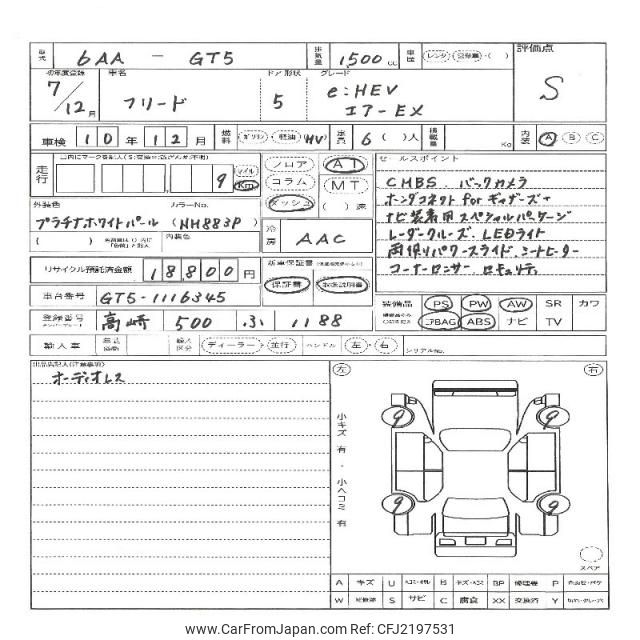 型式 6AA - GT5 排気量 1500 cc 車歴 レンタ 評価点
初年度登録 車名 ドア 形状 グレード
7/12月 フリード 5 e:HEV エアーEX S
車検 10年12月 燃料 ガソリン・軽油 (HV) 定員 6 ( )人 積載量 Kg 内装 A B C
走行 9 マイル Km フロア AT セールスポイント
コラム MT
ダッシュ ( )速
外装色 カラーNo.
プラチナホワイトパール (NH883P)
内装色
冷房 AAC
CMBS. バックカメラ
ホンダコネクト for ギャザーズ+
ナビ装着用スペシャルパッケージ
レーダークルーズ. LEDライト
両側パワースライド. シートヒーター
コーナーセンサー. セキュリティ
リサイクル預託済金額 18800円 新車保証書 保証書 取扱説明書
車台番号 GT5-1116345
装備品 PS PW AW SR カワ
エアBAG ABS ナビ TV
登録番号 高崎 500 ふ 1188
輸入車 年式 輸入区分 ディーラー・並行 ハンドル 左・右 シリアルNo.
オーディオレス
左 右
小キズ有・小ヘコミ有
9 9
9 9
スペア
A キズ U B キズ・ヘコ BP 修理跡 P
W S サビ C 腐食 XX 交換済 Y
www.CarFromJapan.com - CFJ2197531